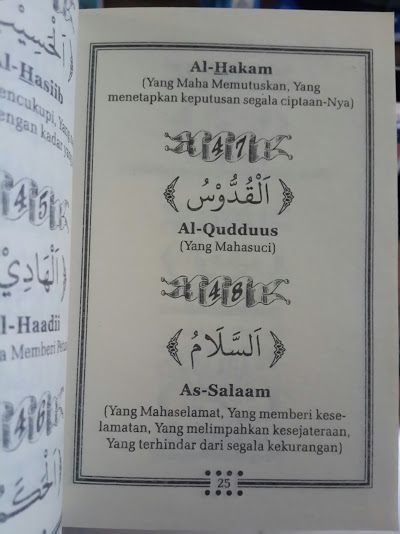 اَلْحَسِيْبُ
Al-Hasiib
45
اَلْهَادِيْ
Al-Haadii
46
Al-Hakam
(Yang Maha Memutuskan, Yang
menetapkan keputusan segala ciptaan-Nya)
47
اَلْقُدُّوْسُ
Al-Qudduus
(Yang Mahasuci)
48
اَلسَّلَامُ
As-Salaam
(Yang Mahaselamat, Yang memberi kese-
lamatan, Yang melimpahkan kesejateraan,
Yang terhindar dari segala kekurangan)
25